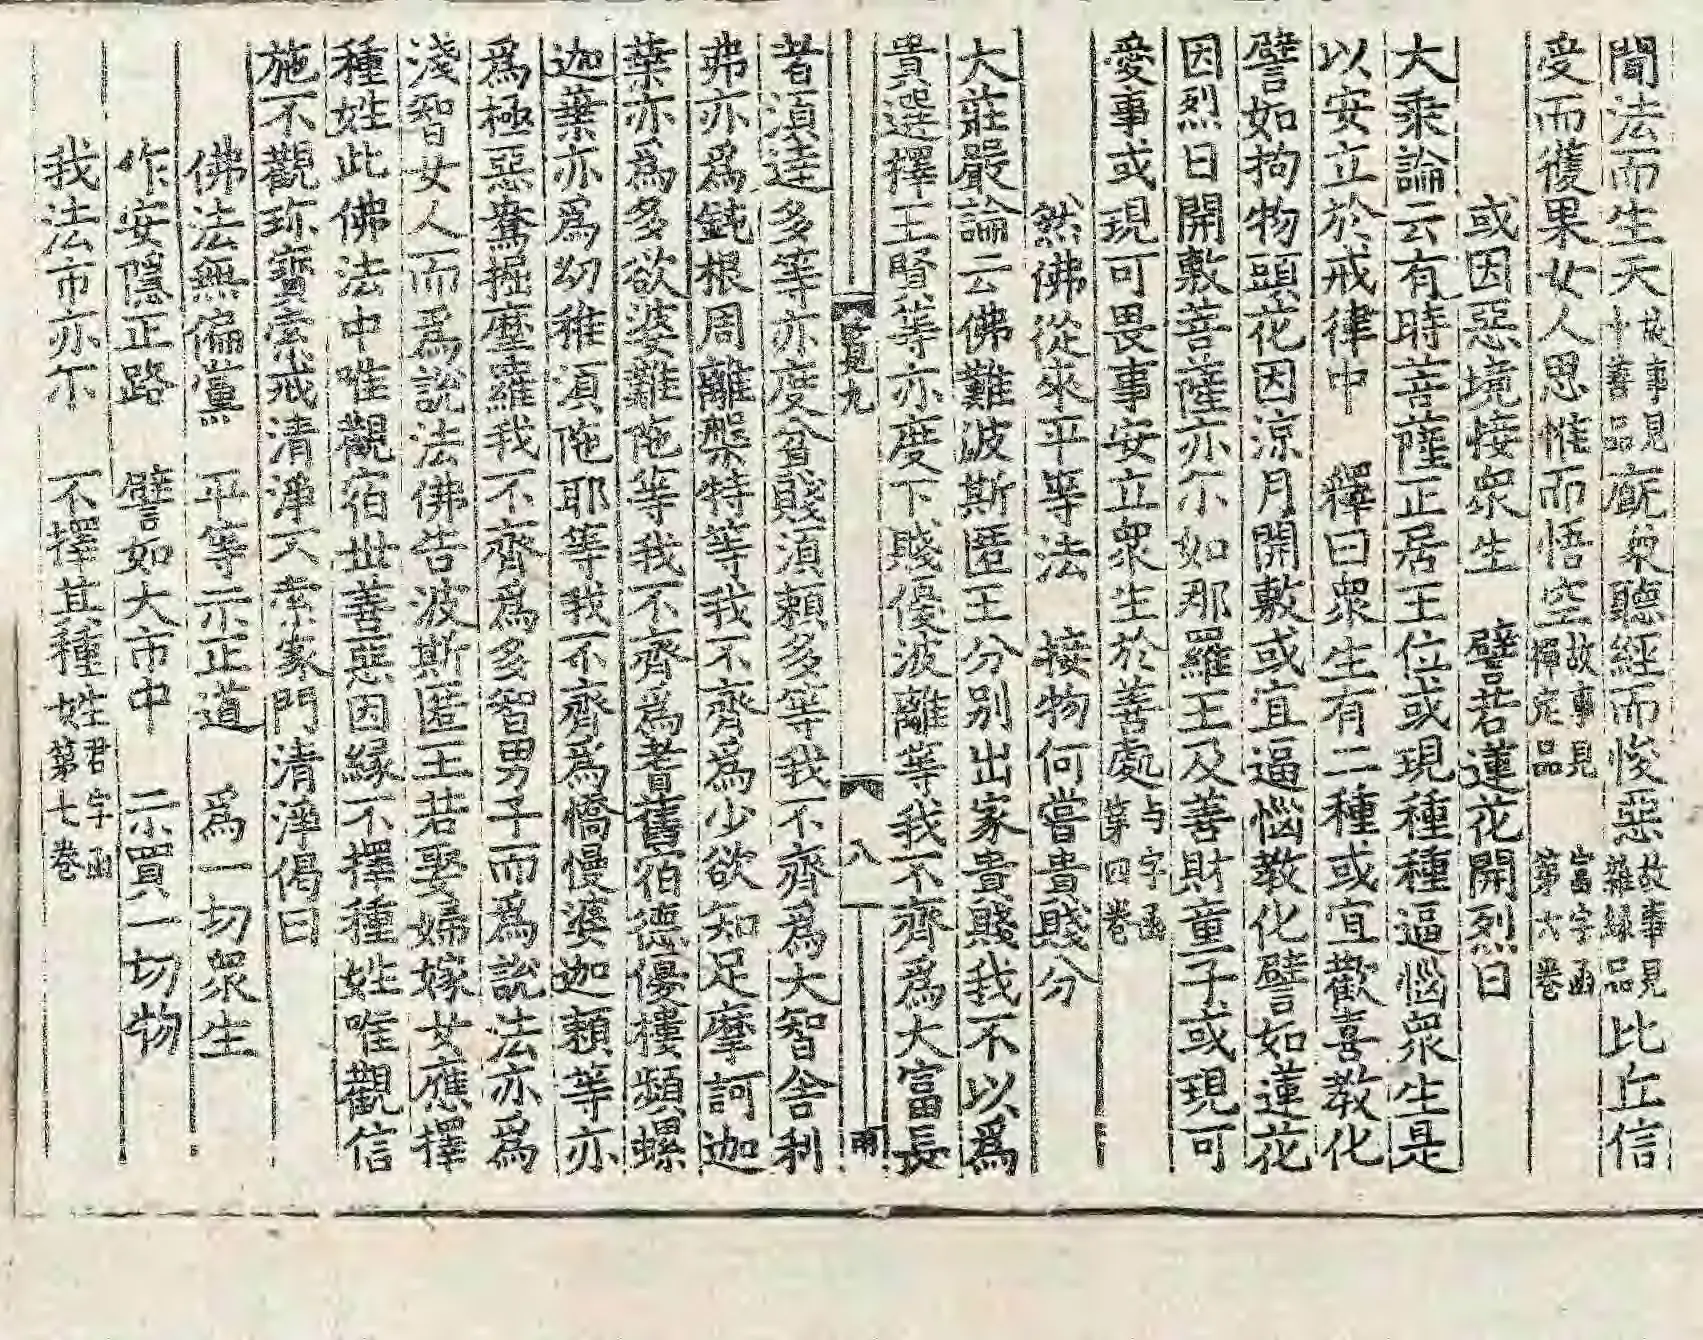 聞法而生天故事見十善品厩象聽經而悛惡故事見雜緣品比丘信
受而獲果女人思惟而悟空故事見禪定品富字函第六卷
或因惡境接衆生　譬若蓮花開烈日
大乘論云有時菩薩正居王位或現種種逼惱衆生是
以安立於戒律中　釋曰衆生有二種或宜歡喜教化
譬如拘物頭花因涼月開敷或宜逼惱教化譬如蓮花
因烈日開敷菩薩亦尒如那羅王及善財童子或現可
愛事或現可畏事安立衆生於善處与字函第四卷
然佛從來平等法　接物何當貴賤分
大莊嚴論云佛難波斯匿王分別出家貴賤我不以爲
貴選擇王賢等亦度下賤優波離等我不齊爲大富長
九
八
者湏達多等亦度貧賤湏賴多等我不齊爲大智舍利
弗亦爲鈍根周離槃特等我不齊爲少欲知足摩訶迦
葉亦爲多欲婆難陁等我不齊爲耆舊宿德優樓頻螺
迦葉亦爲幼稚湏陁耶等我不齊爲憍慢婆迦賴等亦
爲極惡鴦掘摩羅我不齊爲多智男子而爲說法亦爲
淺智女人而爲說法佛告波斯匿王若娶婦嫁女應擇
種姓此佛法中唯觀宿世善惡因緣不擇種姓唯觀信
施不觀珎寶索戒清淨不索家門清淨偈曰
佛法無偏黨　平等示正道　爲一切衆生
作安隱正路　譬如大市中　示買一切物
我法市亦尒　不擇其種姓君字函第七卷